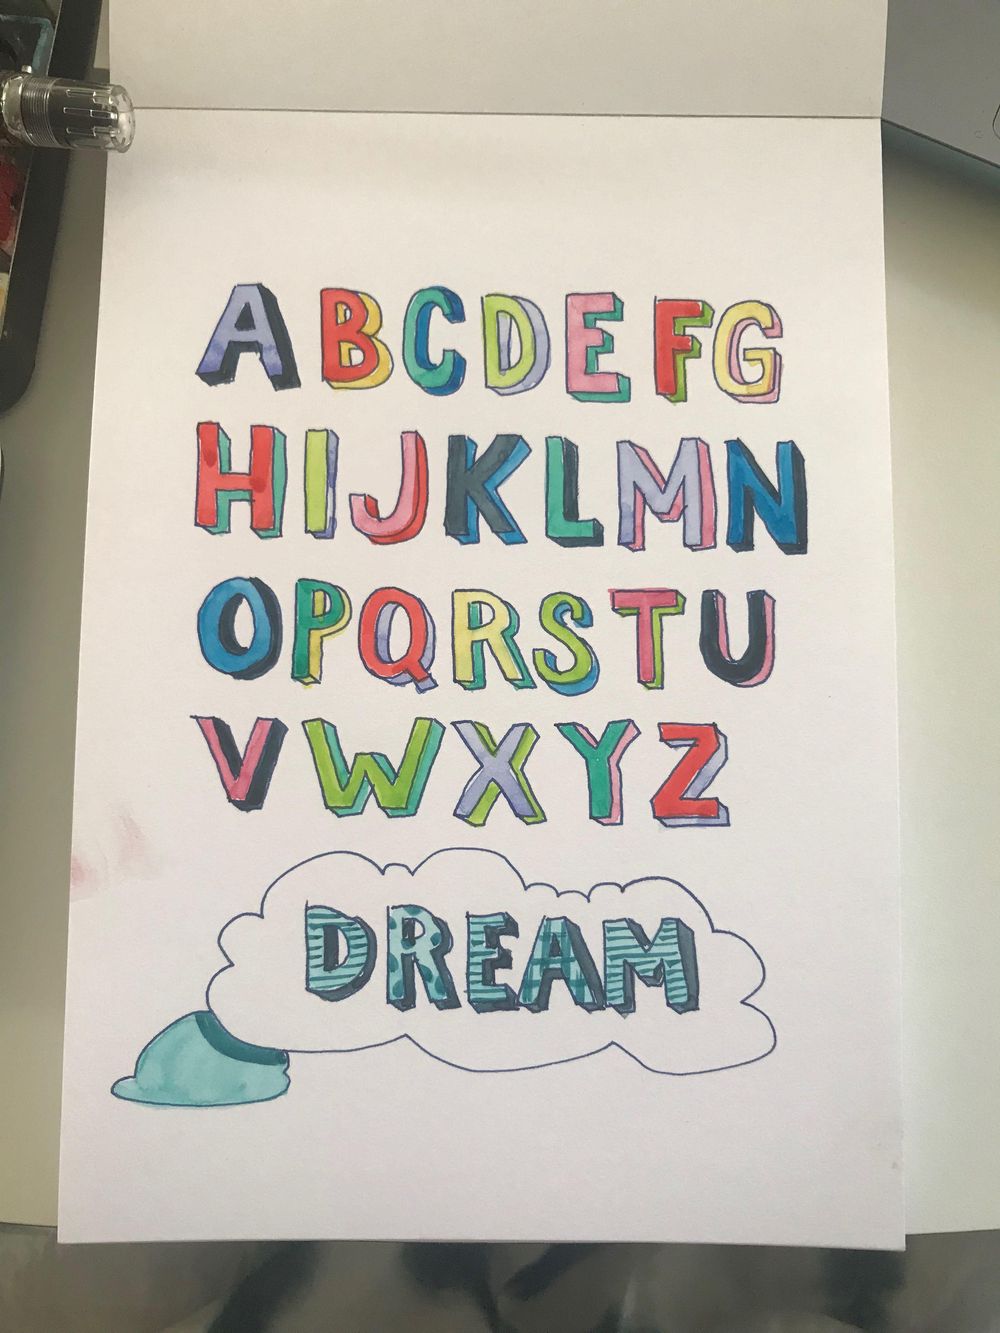 ABCDEFG
HIJKLMN
OPQRSTU
VWXYZ
DREAM